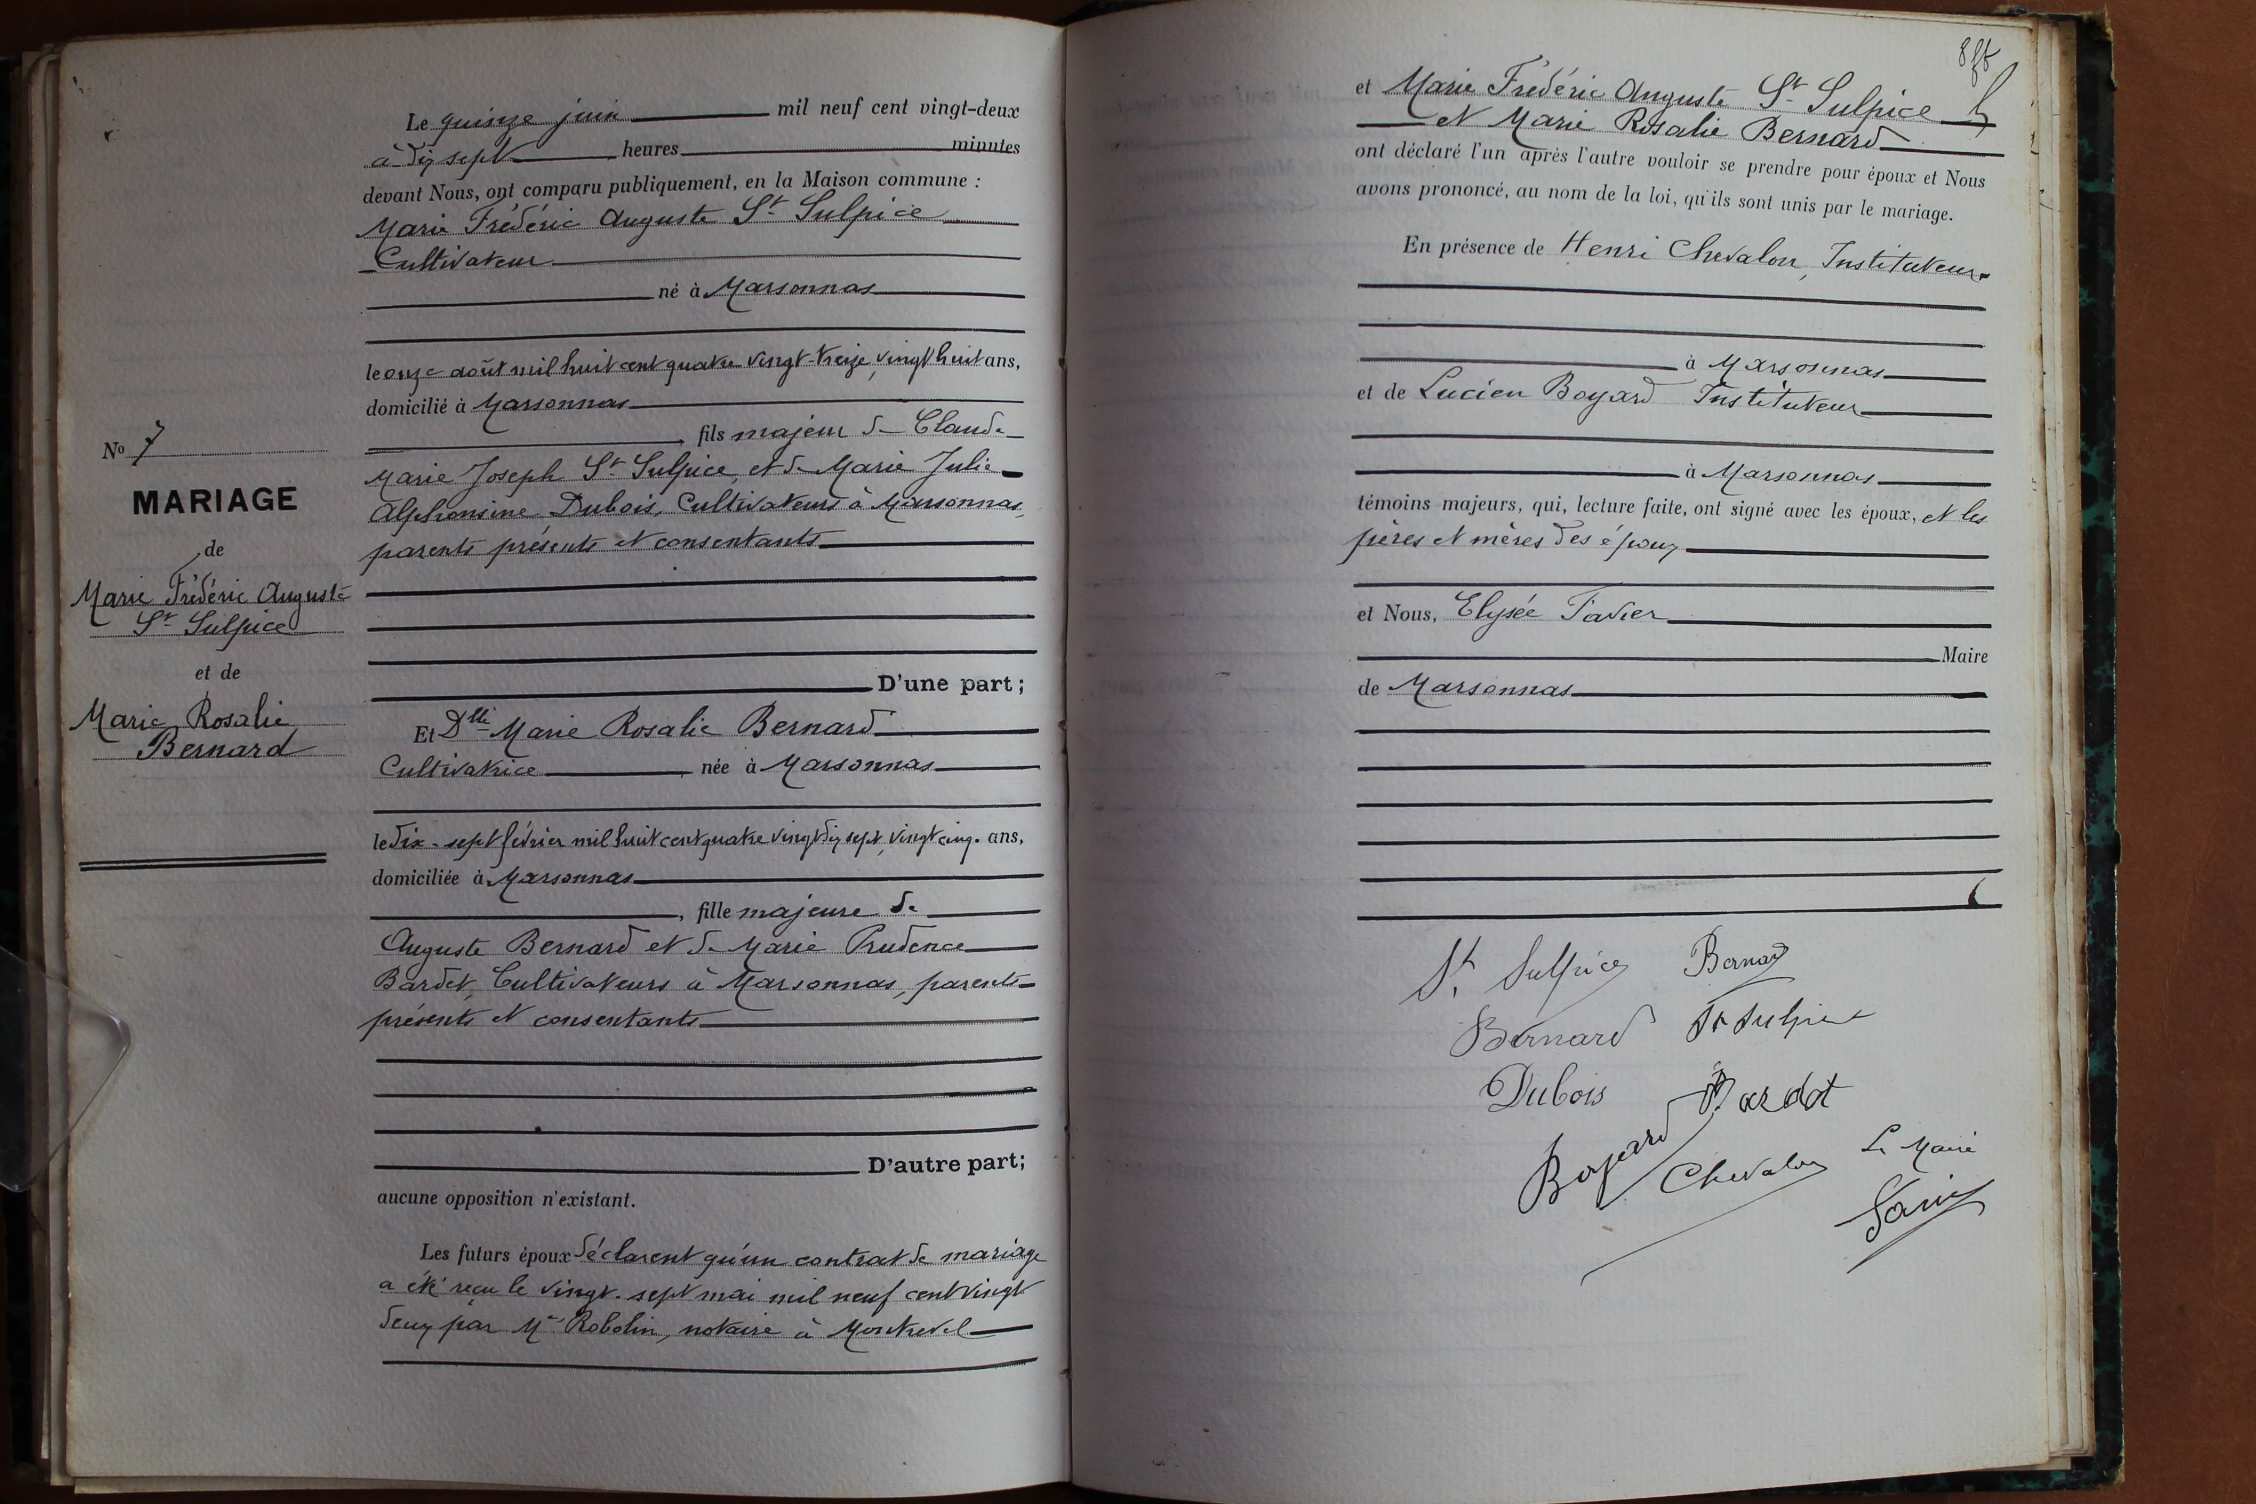 No 7
MARIAGE
de
Marie Frédéric Auguste
St Sulpice
et de
Marie Rosalie
Bernard
Le quinze juin mil neuf cent vingt-deux
à dix sept heures minutes
devant Nous, ont comparu publiquement, en la Maison commune :
Marie Frédéric Auguste St Sulpice
Cultivateur
né à Marsonnas
le onze août mil huit cent quatre vingt-treize, vingt huit ans,
domicilié à Marsonnas
, fils majeur de Claude
Marie Joseph St Sulpice, et de Marie Julie
Alphonsine Dubois, Cultivateurs à Marsonnas,
parents présents et consentants
D'une part ;
Et Dlle Marie Rosalie Bernard
Cultivatrice, née à Marsonnas
le dix-sept février mil huit cent quatre vingt dix sept, vingt cinq ans,
domiciliée à Marsonnas
, fille majeure de
Auguste Bernard et de Marie Prudence
Bardet, Cultivateurs à Marsonnas, parents
présents et consentants
D'autre part ;
aucune opposition n'existant.
Les futurs époux déclarent qu'un contrat de mariage
a été reçu le vingt-sept mai mil neuf cent vingt
deux par Me Robelin, notaire à Montrevel
et Marie Frédéric Auguste St Sulpice
et Marie Rosalie Bernard
ont déclaré l'un après l'autre vouloir se prendre pour époux et Nous
avons prononcé, au nom de la loi, qu'ils sont unis par le mariage.
En présence de Henri Chevalon, Instituteur
à Marsonnas
et de Lucien Boyard Instituteur
à Marsonnas
témoins majeurs, qui, lecture faite, ont signé avec les époux, et les
pères et mères des époux
et Nous, Elysée Favier
Maire
de Marsonnas
St Sulpice Bernard
Bernard St Sulpice
Dubois Bardet
Boyard Chevalon Le Maire
Favier